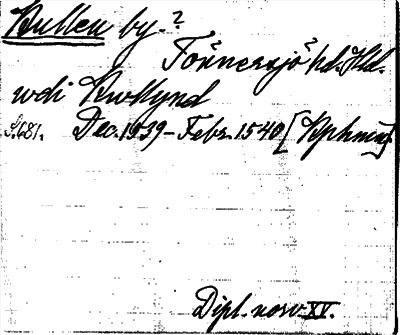 Bullen by. ?
Tönnersjö? hd. Hld.
udi Bwllynd
S. 681. Dec. 1539 – Febr. 1540 [Kphmn].
Dipl. norv. XV.